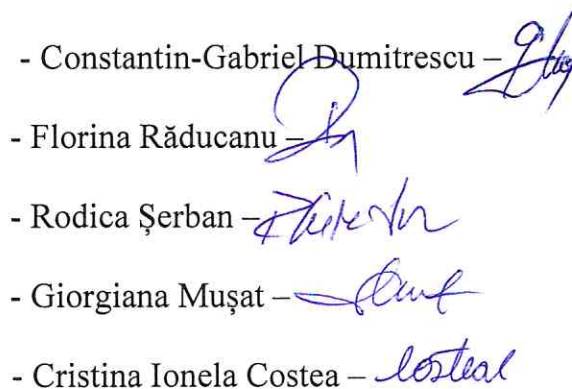 - Constantin-Gabriel Dumitrescu –
- Florina Răducanu –
- Rodica Șerban –
- Giorgiana Mușat –
- Cristina Ionela Costea –